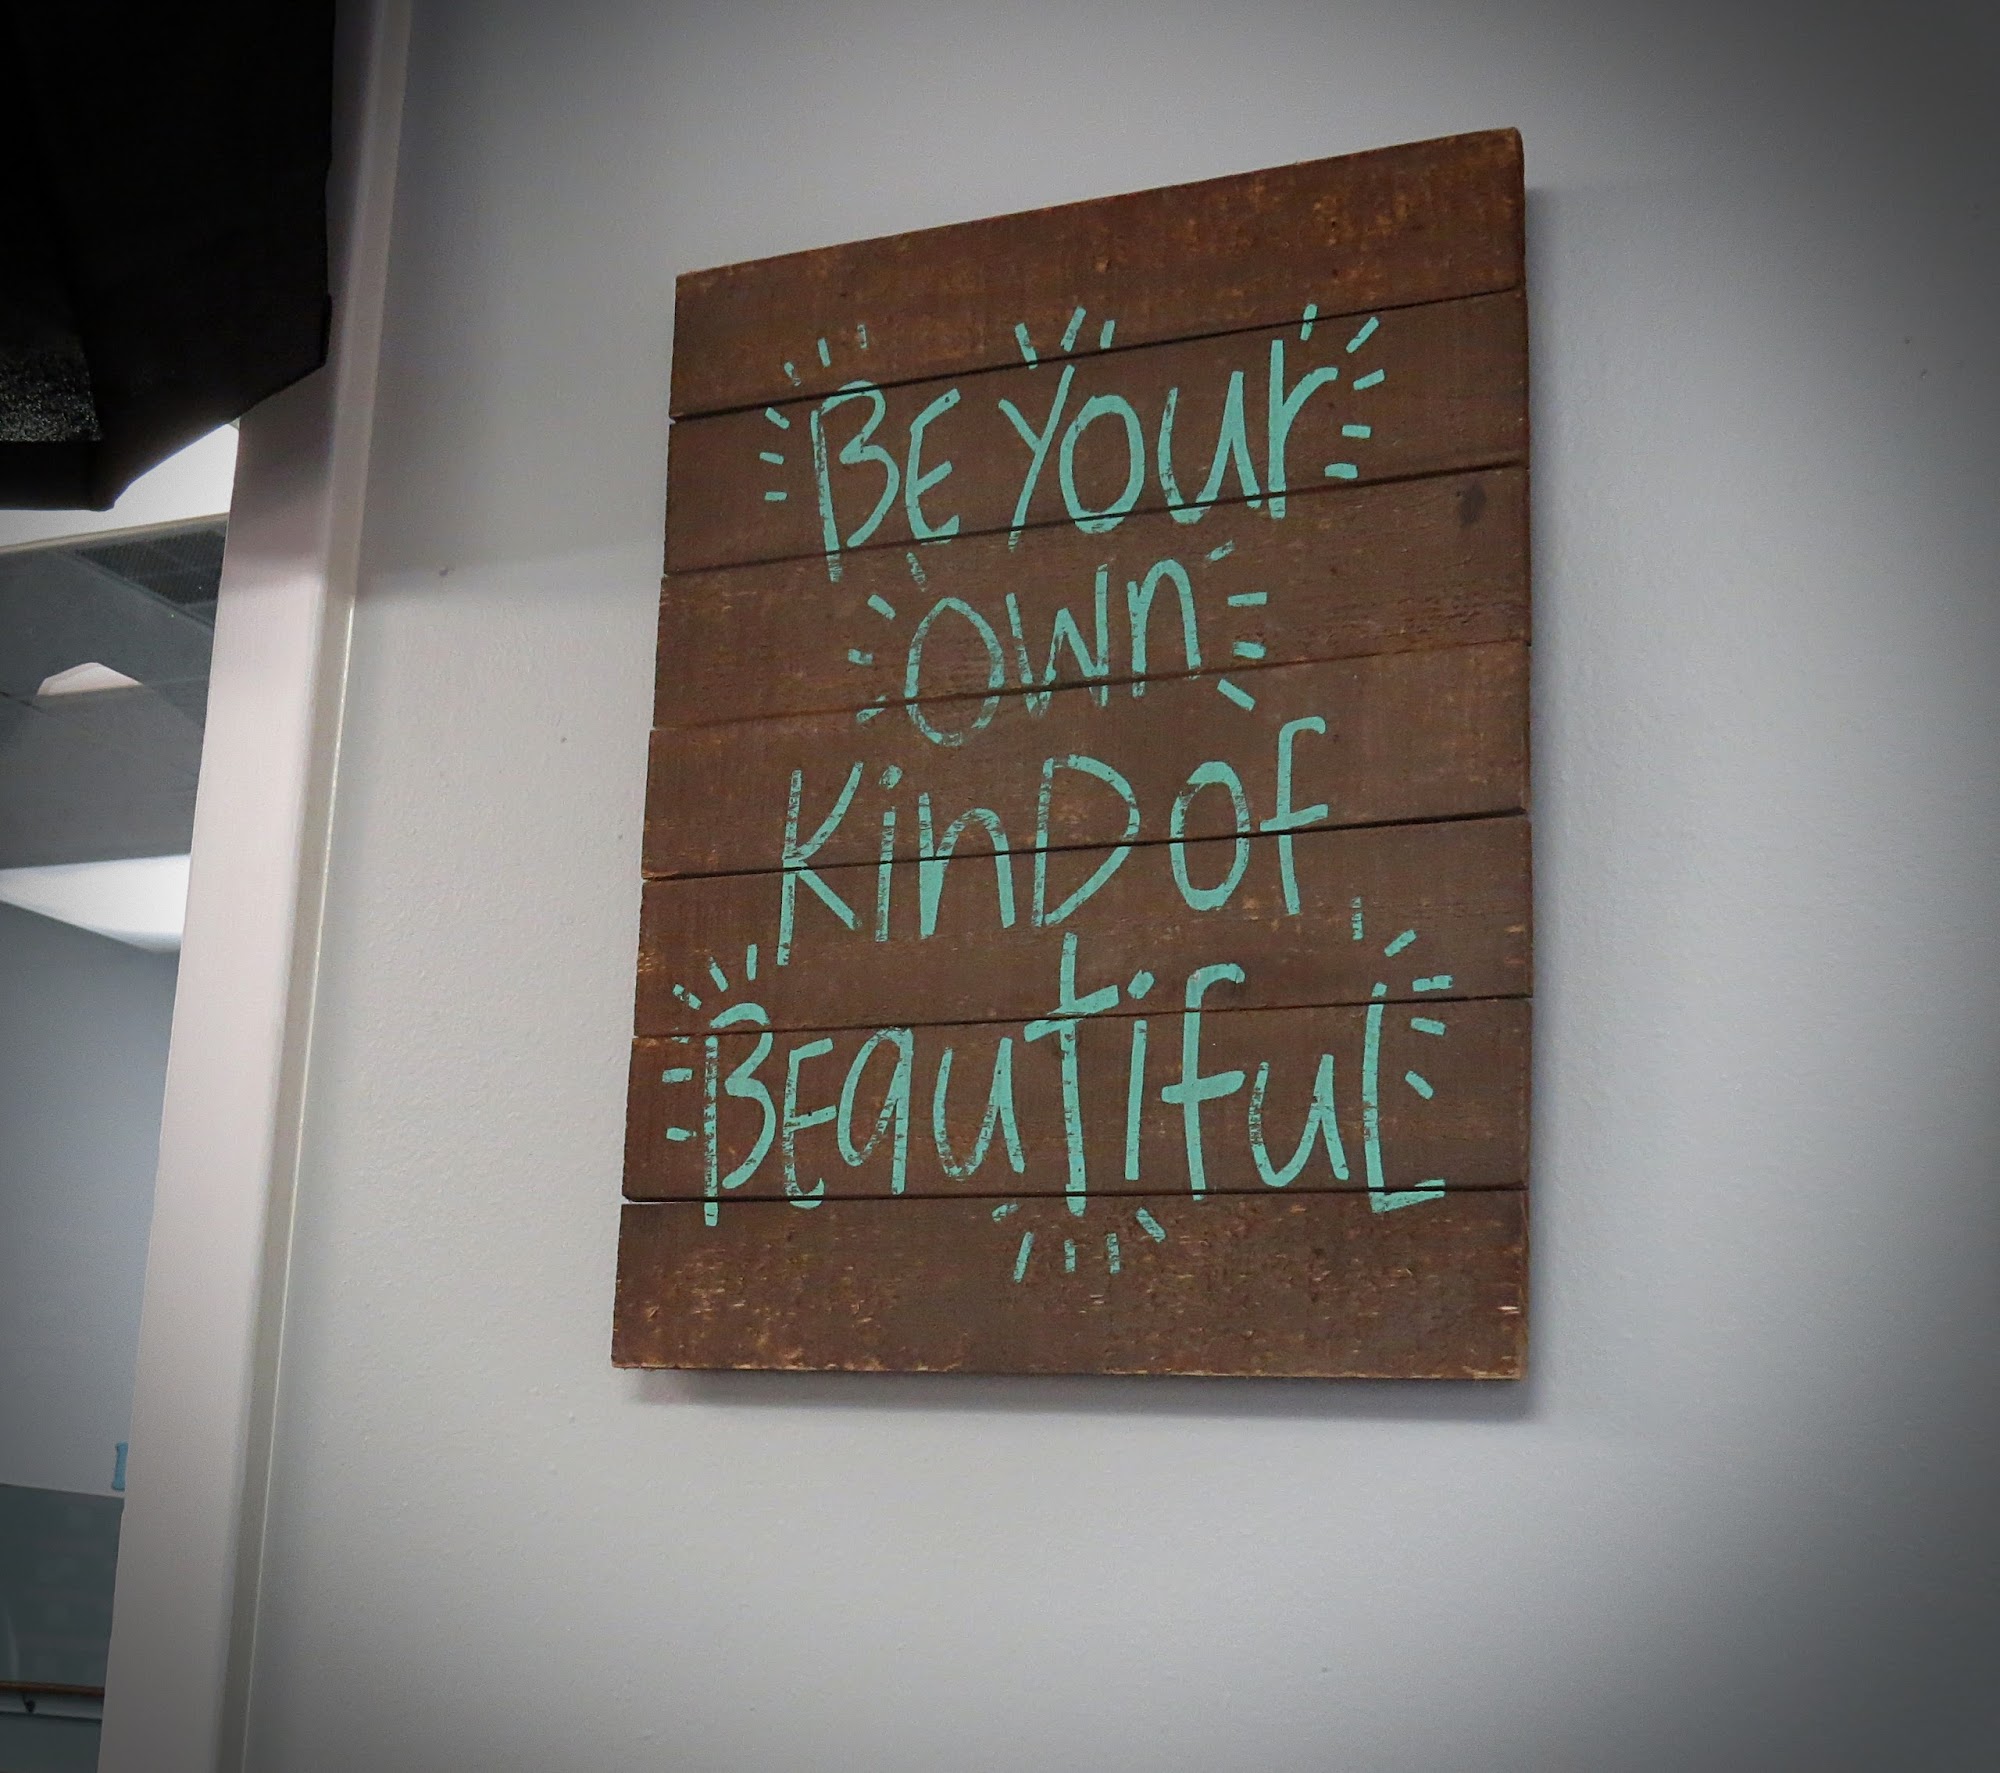 Be Your
Own
KinD Of
BEautifuL